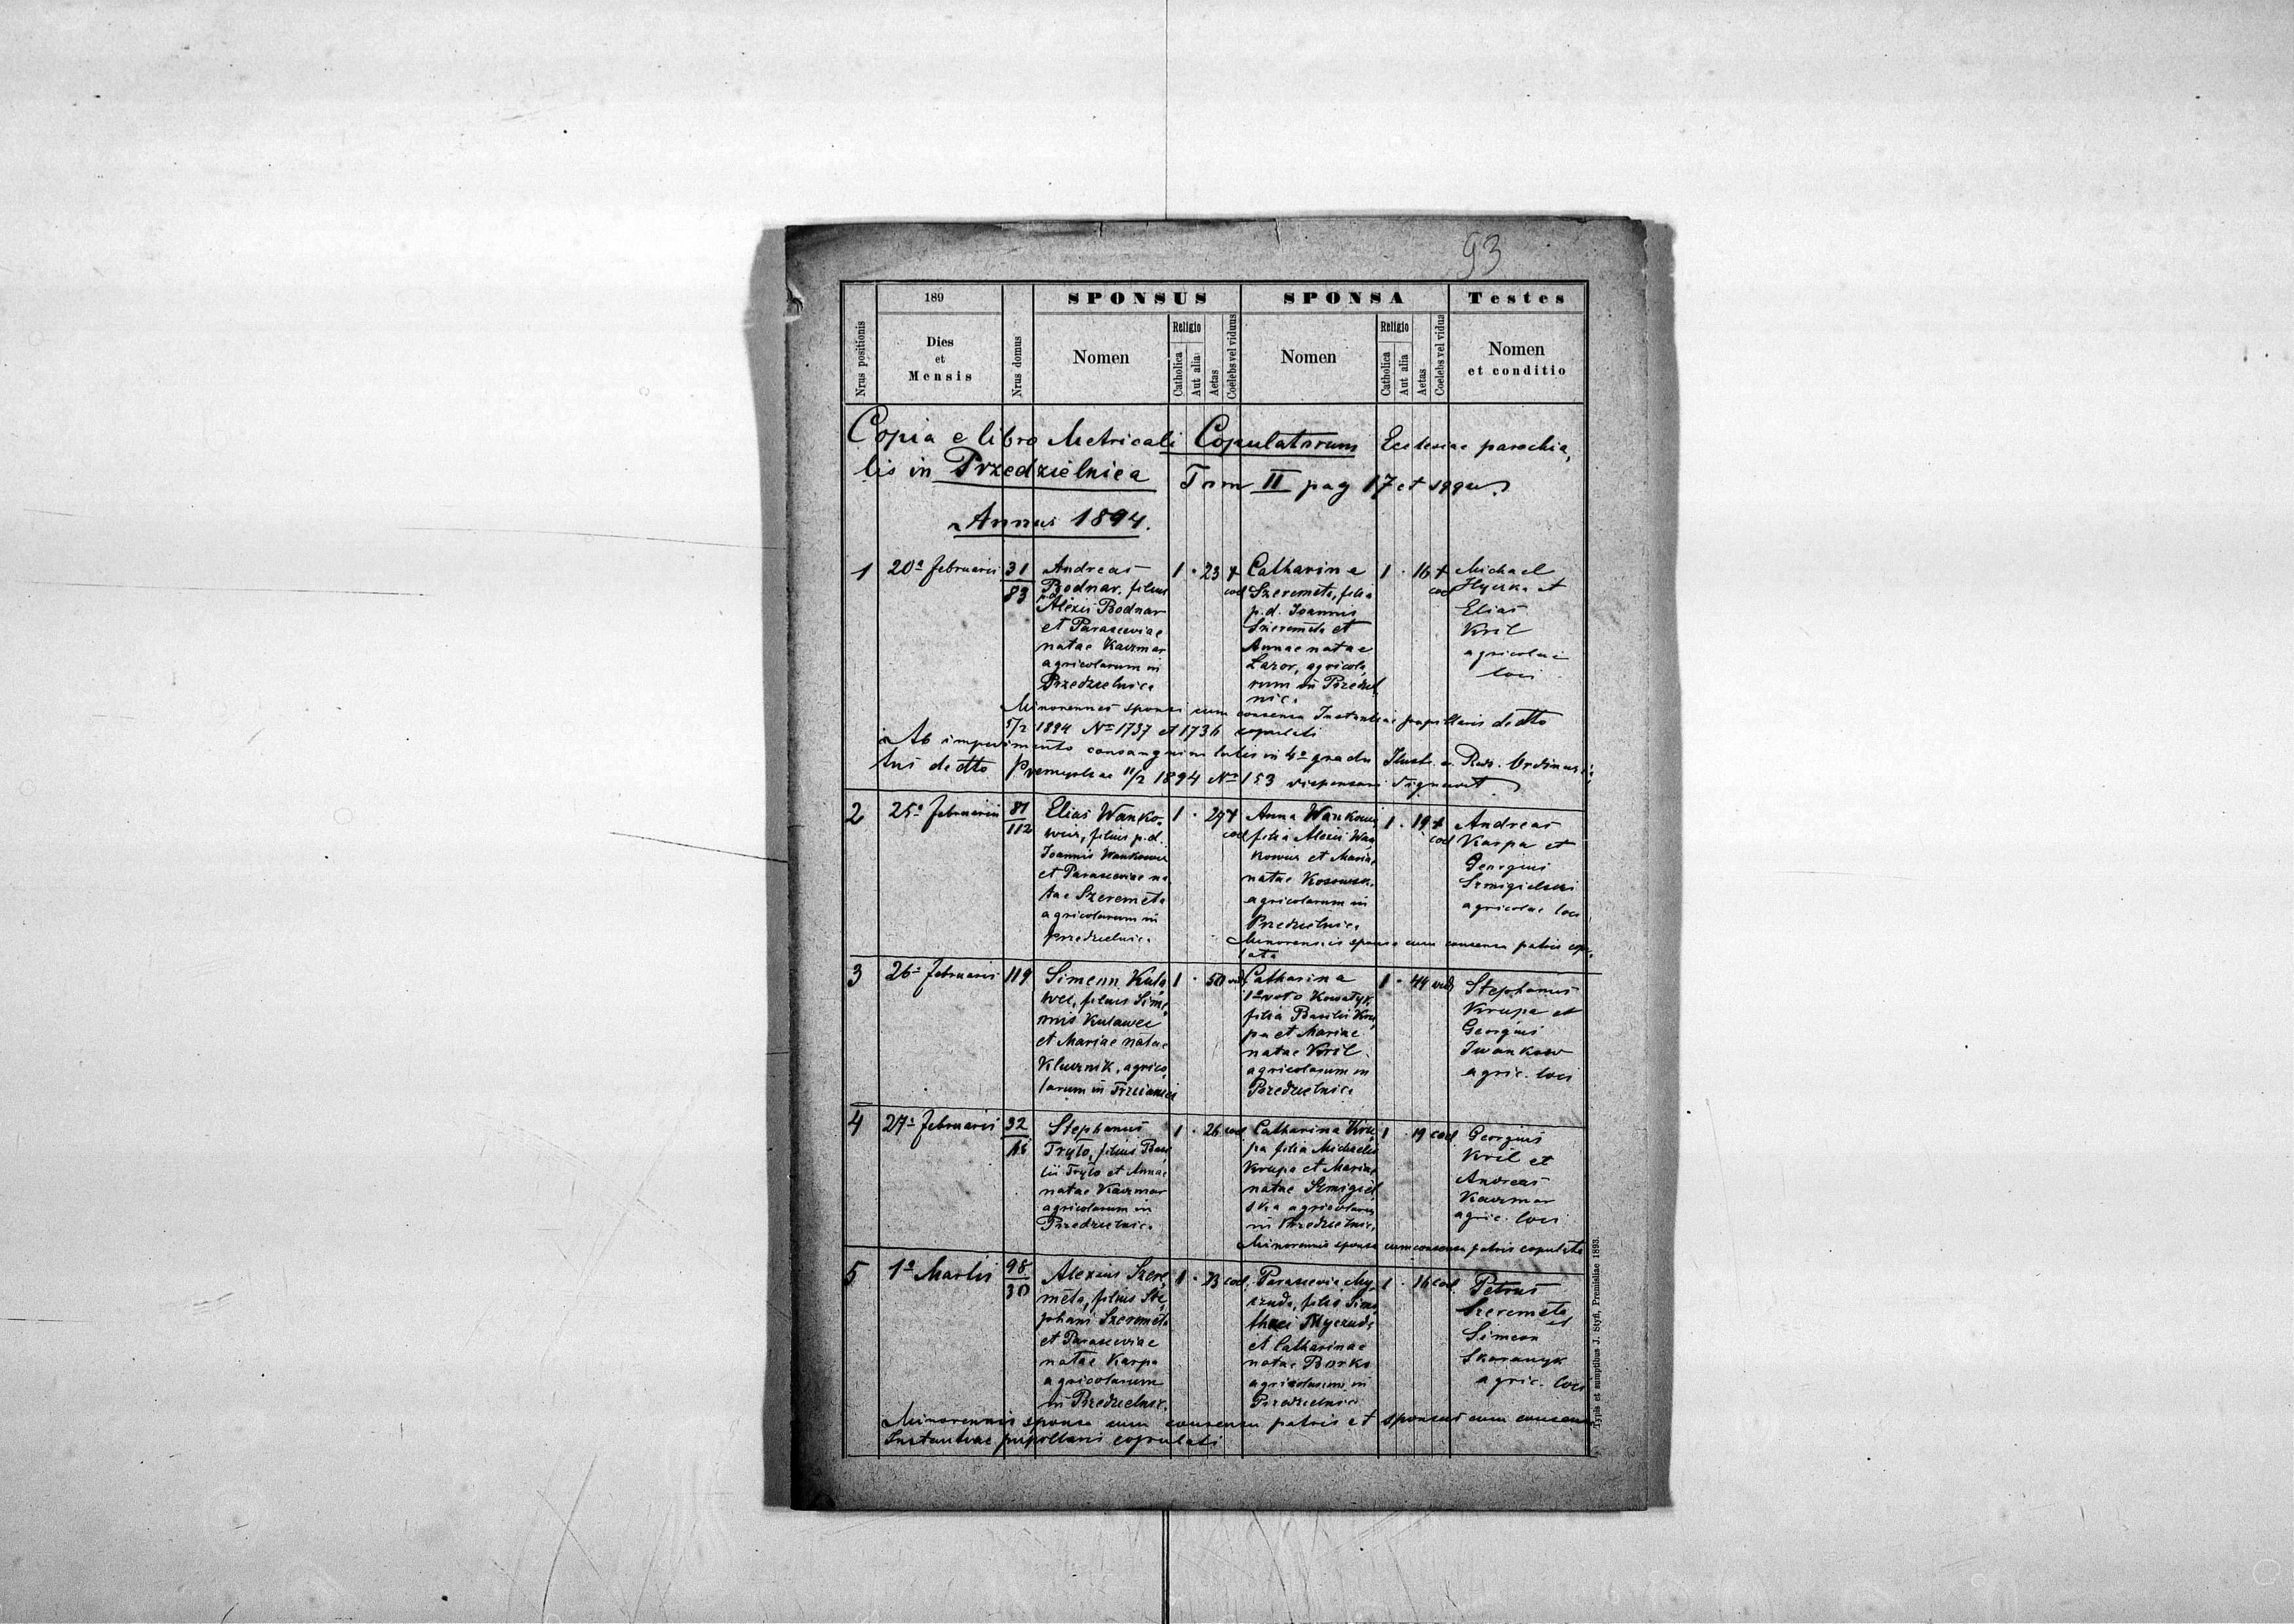 93
189
SPONSUS
SPONSA
Testes
Nrus positionis
Dies
et
Mensis
Nrus domus
Nomen
Religio
Catholica
Aut alia
Aetas
Coelebs vel viduus
Nomen
Religio
Catholica
Aut alia
Aetas
Coelebs vel vidua
Nomen
et conditio
Copia e libro Metricali Copulatorum Ecclesiae parochia,
lis in Przedzielnica Tom II pag 17 et sqqu
Annus 1894.
1
20a februarii
31
83
Andreas
Bodnar, filius
p.d.
Alexii Bodnar
et Parasceviae
natae Kaczmar
agricolarum in
Przedzielnica
1 · 23 +
coel
Catharina
Szeremeta, filia
p.d. Joannis
Szeremeta et
Annae natae
Lazor, agricola,
rum in Przedziel
nica
1 · 16 +
coel
Michael
Hyczka et
Elias
Kril
agricolae
loci
Minorennes sponsi cum consensu Instantiae pupillaris de dtto
5/2 1894 No 1737 et 1736 copulati
Ab impedimento consanguinitatis in 4o gradu Illust. ac Rds. Ordinari
tus de dtto Premysliae 11/2 1894 No 153 dispensare dignavit
2
25a februarii
81
112
Elias Wanko,
wicz, filius p.d.
Joannis Wankowicz
et Parasceviae na
tae Szeremeta
agricolarum in
Przedzielnica
1 · 29 +
coel
Anna Wankowicz
filia Alexii Wan
kowicz et Mariae
natae Kosowska
agricolarum in
Przedzielnica
1 · 19 +
coel
Andreas
Karpa et
Georgius
Szmigielski
agricolae loci
Minorennis sponsa cum consensu patris copu,
lata
3
26a februarii
119
Simeon Kula,
wec, filius Sime,
onis Kulawec
et Mariae natae
Klucznik, agrico,
larum in Trzcianiec
1 · 50 vid
Catharina
1o voto Kowalyk
filia Basilii Kru
pa et Mariae
natae Kril
agricolarum in
Przedzielnica
1 · 44 vid
Stephanus
Krupa et
Georgius
Iwankow
agric. loci
4
27a februarii
32
Stephanus
Tryło, filius Basi
lii Tryło et Annae
natae Kaczmar
agricolarum in
Przedzielnica
1 · 26 coel
Catharina Kru,
pa filia Michaelis
Krupa et Mariae
natae Szmigiel
ska agricolarum
in Przedzielnica
1 · 19 coel
Georgius
Kril et
Andreas
Kaczmar
agric. loci
Minorennis sponsa cum consensu patris copulata
5
1a Martii
98
30
Alexius Szere,
meta, filius Ste,
phani Szeremeta
et Parasceviae
natae Karpa
agricolarum
in Przedzielnica
1 · 23 coel
Parascevia My
czuda, filia Timo
thei Myczuda
et Catharinae
natae Borko
agricolarum in
Przedzielnica
1 · 16 coel
Petrus
Szeremeta
et
Simeon
Skoranyk
agric. loci
Minorennis sponsa cum consensu patris et sponsus cum consensu
Instantiae pupillaris copulati
Typis et sumptibus J. Styfi, Premisliae 1893.